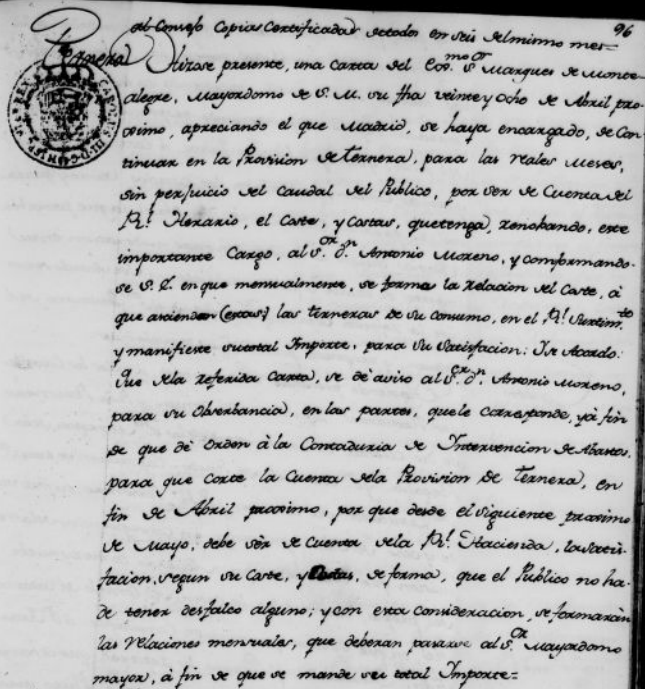 96
al Consejo Copias Certificadas de todos en seis del mismo mes=
Ternera
Hizose presente, una carta del Exc.mo S.or Marques de Monte
alegre, Mayordomo de S. M. su fha veinte y ocho de Abril pro
ximo, apreciando el que Madrid, se haya encargado, de Con
tinuar en la Provision de ternera, para las reales Mesas,
sin perjuicio del Caudal del Publico, por ser de Cuenta del
R.l Herario, el Coste, y Costas, que tenga, renobando, este
importante Cargo, al S.or d.n Antonio Moreno, y comformando
se S. E. en que mensualmente, se forme la relacion del Coste, à
que ascienden (estas) las terneras de su Consumo, en el R.l Surtim.to
y manifieste su total Importe, para su Satisfacion: Y se Acordo:
Que de la referida Carta, se dè aviso al S.or d.n Antonio Moreno,
para su Obserbancia, en las partes, que le corresponde, y à fin
de que dè Orden à la Contaduria de Intervencion de Abastos,
para que corte la Cuenta de la Provision de ternera, en
fin de Abril proximo, por que desde el siguiente proximo
de Mayo, debe sèr de Cuenta de la R.l Hacienda, la satis
facion, segun su Coste, y Costas, de forma, que el Publico no ha
de tener desfalco alguno; y con esta consideracion, se formaràn
las relaciones mensuales, que deberan pasarse al S.or Mayordomo
mayor, à fin de que se mande su total Importe=